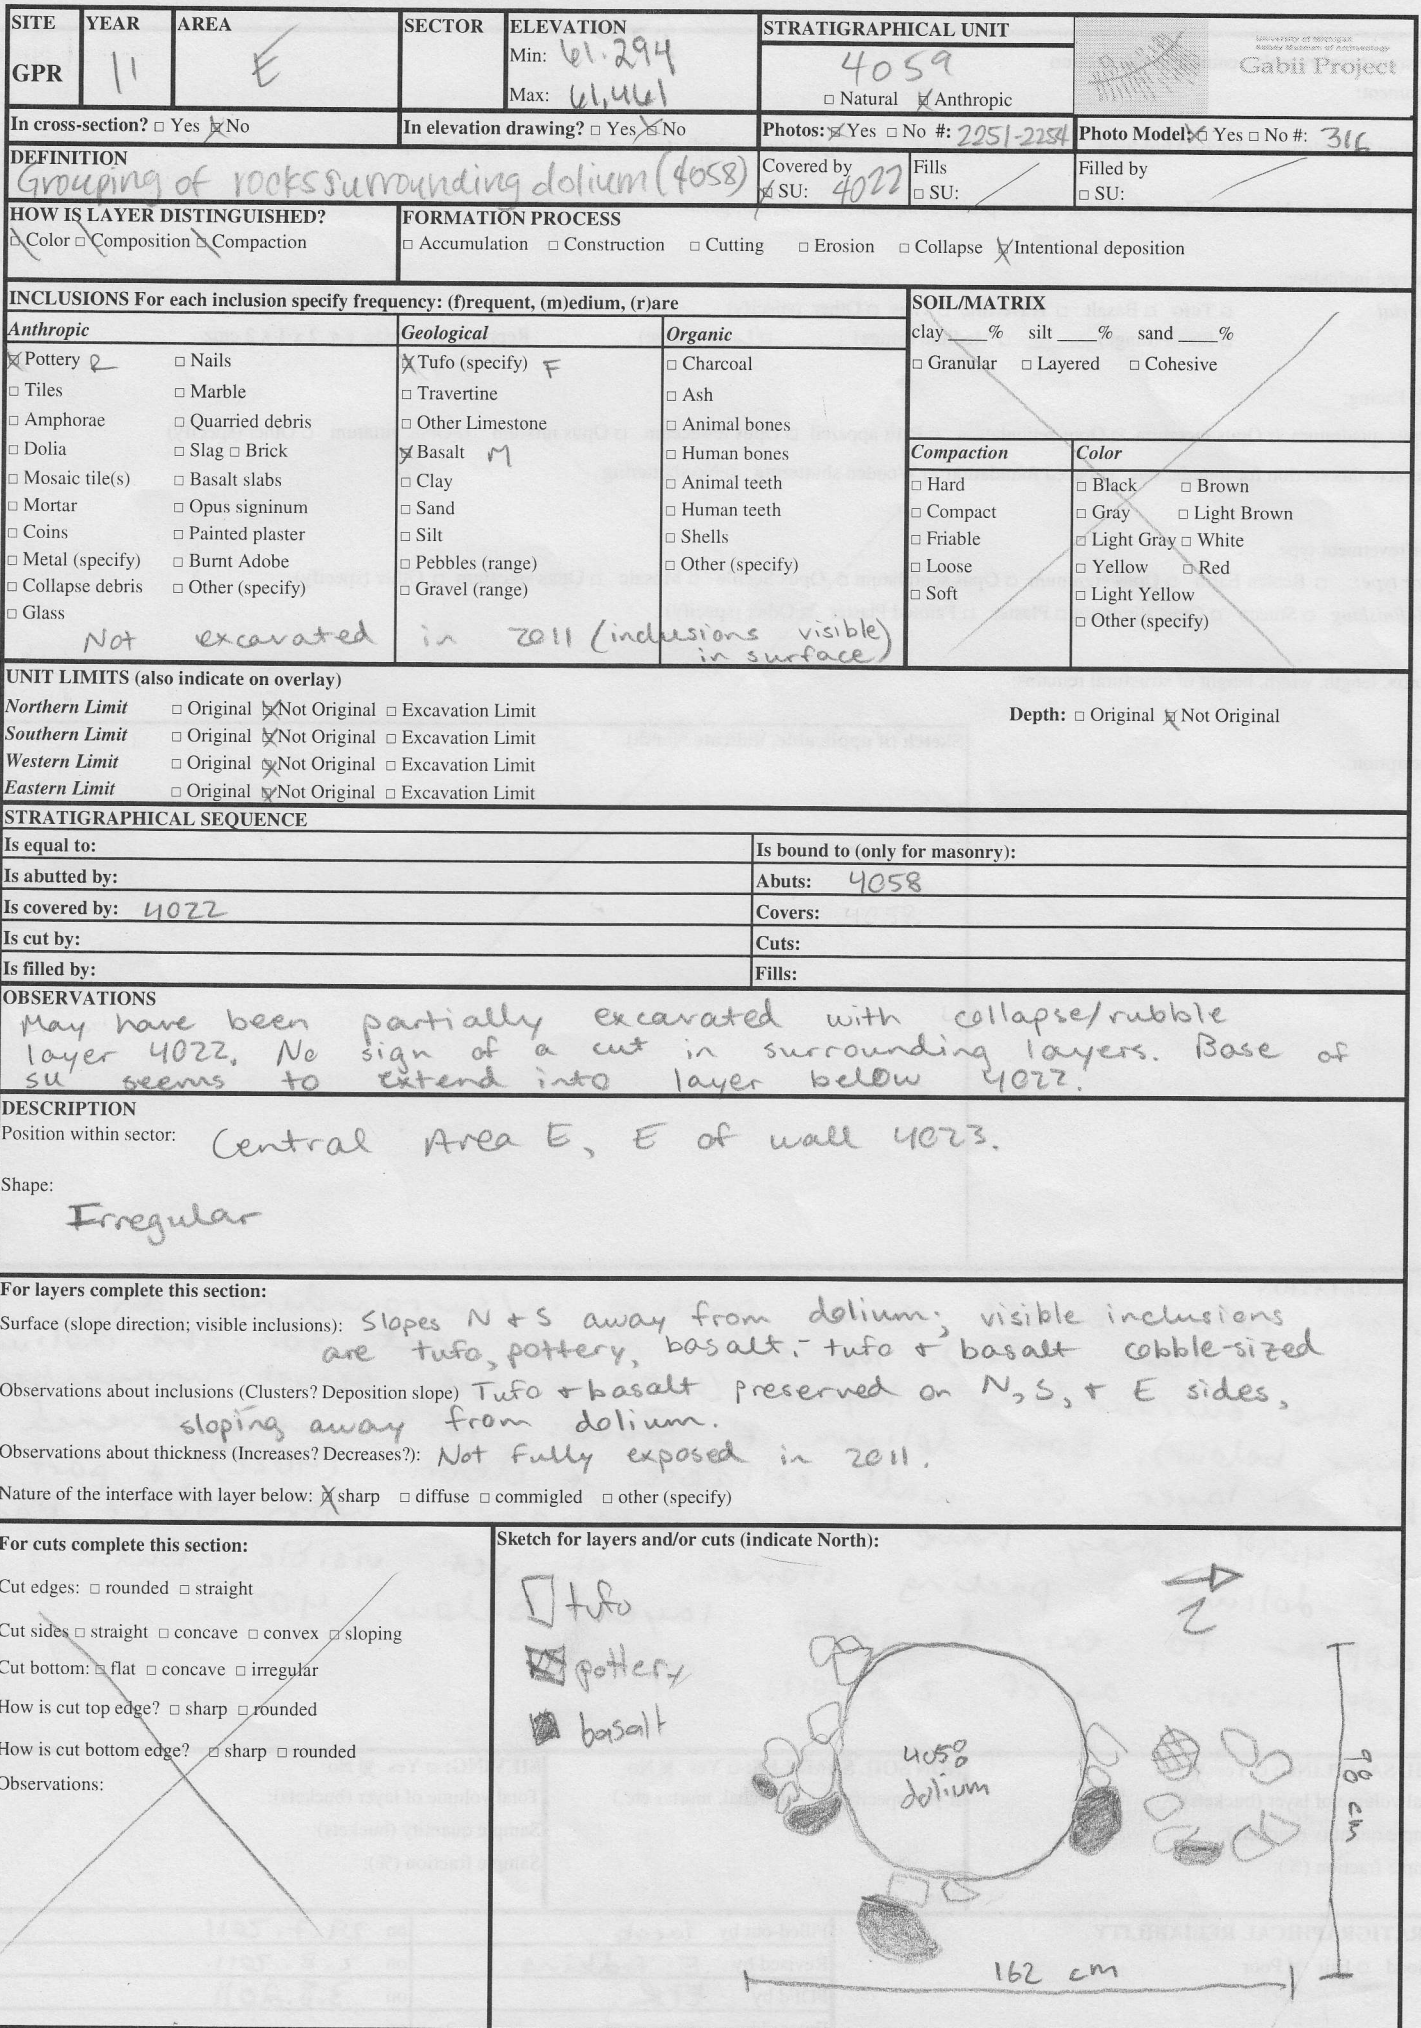 SITE YEAR AREA SECTOR ELEVATION STRATIGRAPHICAL UNIT
GPR 11 E Min: 61.294 4059
Max: 61,461 □ Natural ☒ Anthropic
University of Michigan
Kelsey Museum of Archaeology
Gabii Project
In cross-section? □ Yes ☒ No In elevation drawing? □ Yes ☒ No Photos: ☒ Yes □ No #: 2251-2254 Photo Model: ☒ Yes □ No #: 316
DEFINITION
Grouping of rocks surrounding dolium (4058)
Covered by
☒ SU: 4022
Fills
□ SU:
Filled by
□ SU:
HOW IS LAYER DISTINGUISHED?
☒ Color ☒ Composition ☒ Compaction
FORMATION PROCESS
□ Accumulation □ Construction □ Cutting □ Erosion □ Collapse ☒ Intentional deposition
INCLUSIONS For each inclusion specify frequency: (f)requent, (m)edium, (r)are
Anthropic
☒ Pottery R □ Nails
□ Tiles □ Marble
□ Amphorae □ Quarried debris
□ Dolia □ Slag □ Brick
□ Mosaic tile(s) □ Basalt slabs
□ Mortar □ Opus signinum
□ Coins □ Painted plaster
□ Metal (specify) □ Burnt Adobe
□ Collapse debris □ Other (specify)
□ Glass
Geological
☒ Tufo (specify) F
□ Travertine
□ Other Limestone
☒ Basalt M
□ Clay
□ Sand
□ Silt
□ Pebbles (range)
□ Gravel (range)
Organic
□ Charcoal
□ Ash
□ Animal bones
□ Human bones
□ Animal teeth
□ Human teeth
□ Shells
□ Other (specify)
Not excavated in 2011 (inclusions visible)
in surface)
SOIL/MATRIX
clay ____% silt ____% sand ____%
□ Granular □ Layered □ Cohesive
Compaction
□ Hard
□ Compact
□ Friable
□ Loose
□ Soft
Color
□ Black □ Brown
□ Gray □ Light Brown
□ Light Gray □ White
□ Yellow □ Red
□ Light Yellow
□ Other (specify)
UNIT LIMITS (also indicate on overlay)
Northern Limit □ Original ☒ Not Original □ Excavation Limit Depth: □ Original ☒ Not Original
Southern Limit □ Original ☒ Not Original □ Excavation Limit
Western Limit □ Original ☒ Not Original □ Excavation Limit
Eastern Limit □ Original ☒ Not Original □ Excavation Limit
STRATIGRAPHICAL SEQUENCE
Is equal to: Is bound to (only for masonry):
Is abutted by: Abuts: 4058
Is covered by: 4022 Covers:
Is cut by: Cuts:
Is filled by: Fills:
OBSERVATIONS
May have been partially excavated with collapse/rubble
layer 4022. No sign of a cut in surrounding layers. Base of
SU seems to extend into layer below 4022.
DESCRIPTION
Position within sector: Central Area E, E of wall 4023.
Shape:
Irregular
For layers complete this section:
Surface (slope direction; visible inclusions): Slopes N + S away from dolium; visible inclusions
are tufo, pottery, basalt. - tufo + basalt cobble-sized
Observations about inclusions (Clusters? Deposition slope) Tufo + basalt preserved on N, S, + E sides,
sloping away from dolium.
Observations about thickness (Increases? Decreases?): Not fully exposed in 2011.
Nature of the interface with layer below: ☒ sharp □ diffuse □ commigled □ other (specify)
For cuts complete this section:
Cut edges: □ rounded □ straight
Cut sides □ straight □ concave □ convex □ sloping
Cut bottom: □ flat □ concave □ irregular
How is cut top edge? □ sharp □ rounded
How is cut bottom edge? □ sharp □ rounded
Observations:
Sketch for layers and/or cuts (indicate North):
tufo
pottery
basalt
N
4058
dolium
98 cm
162 cm